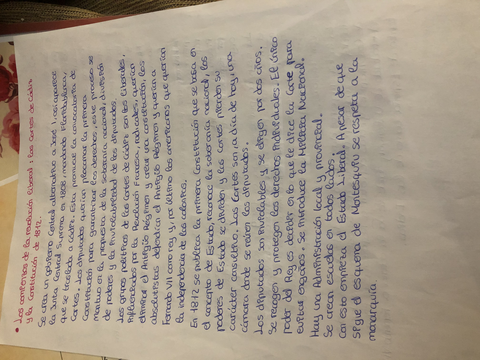 • Los comienzos de la revolución liberal: las Cortes de Cádiz
y la Constitución de 1812.
Se crea un gobierno central alternativo a José I, así aparece
la Junta Central Suprema en 1808, mandando Floridablanca,
que se traslada a Cádiz. Esta promueve la convocatoria de
Cortes. Los diputados querían elaborar la primera
constitución para garantizar los derechos, este proceso se
mantuvo en la propuesta de la soberanía nacional, división
de poderes y la inviolabilidad de los diputados.
Los grupos políticos de las Cortes de Cádiz son los liberales,
influenciados por la Revolución Francesa, radicales, querían
eliminar el Antiguo Régimen y crear una constitución; los
absolutistas defendían el Antiguo Régimen y querían a
Fernando VII como rey y, por último los americanos que querían
la independencia de las colonias.
En 1812 se publica la primera constitución que se basa en
el concepto de Estado, reconoce la soberanía nacional, los
poderes de Estado se dividen y las cortes pierden su
carácter consultivo. Las Cortes son, a día de hoy, una
cámara donde se reúnen los diputados.
Los diputados son inviolables y se eligen por dos años.
Se recogen y protegen los derechos individuales. El único
poder del Rey es decidir en lo que le dice la Corte para
evitar engaños. Se introduce la Milicia Nacional.
Hay una Administración local y provincial.
Se crean escuelas en todos lados.
Con esto empieza el Estado Liberal. A pesar de que
sigue el esquema de Montesquieu se respeta a la
monarquía